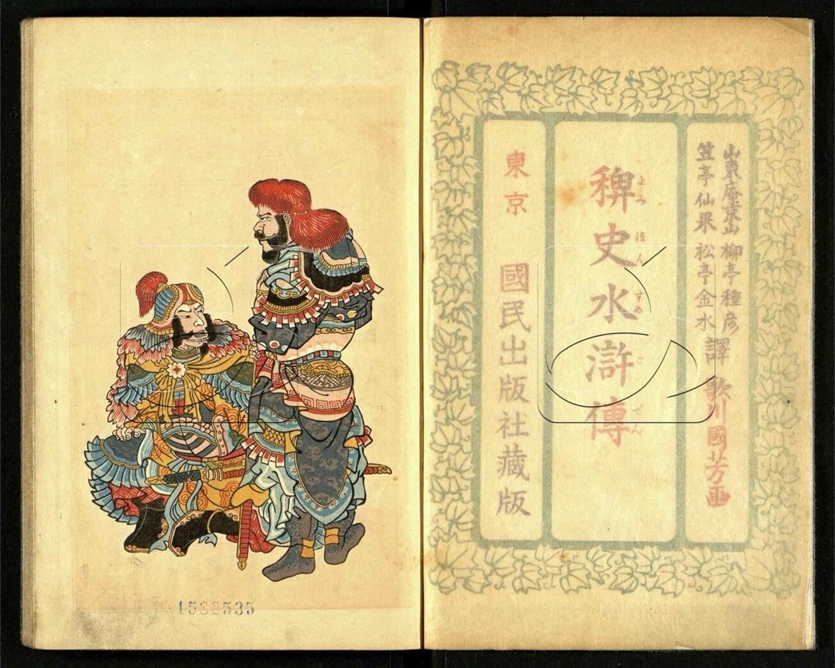 山東庵京山 柳亭種彦
笠亭仙果 松亭金水
譯 歌川國芳画
稗史水滸傳
よみほんすゐこでん
東京 國民出版社藏版